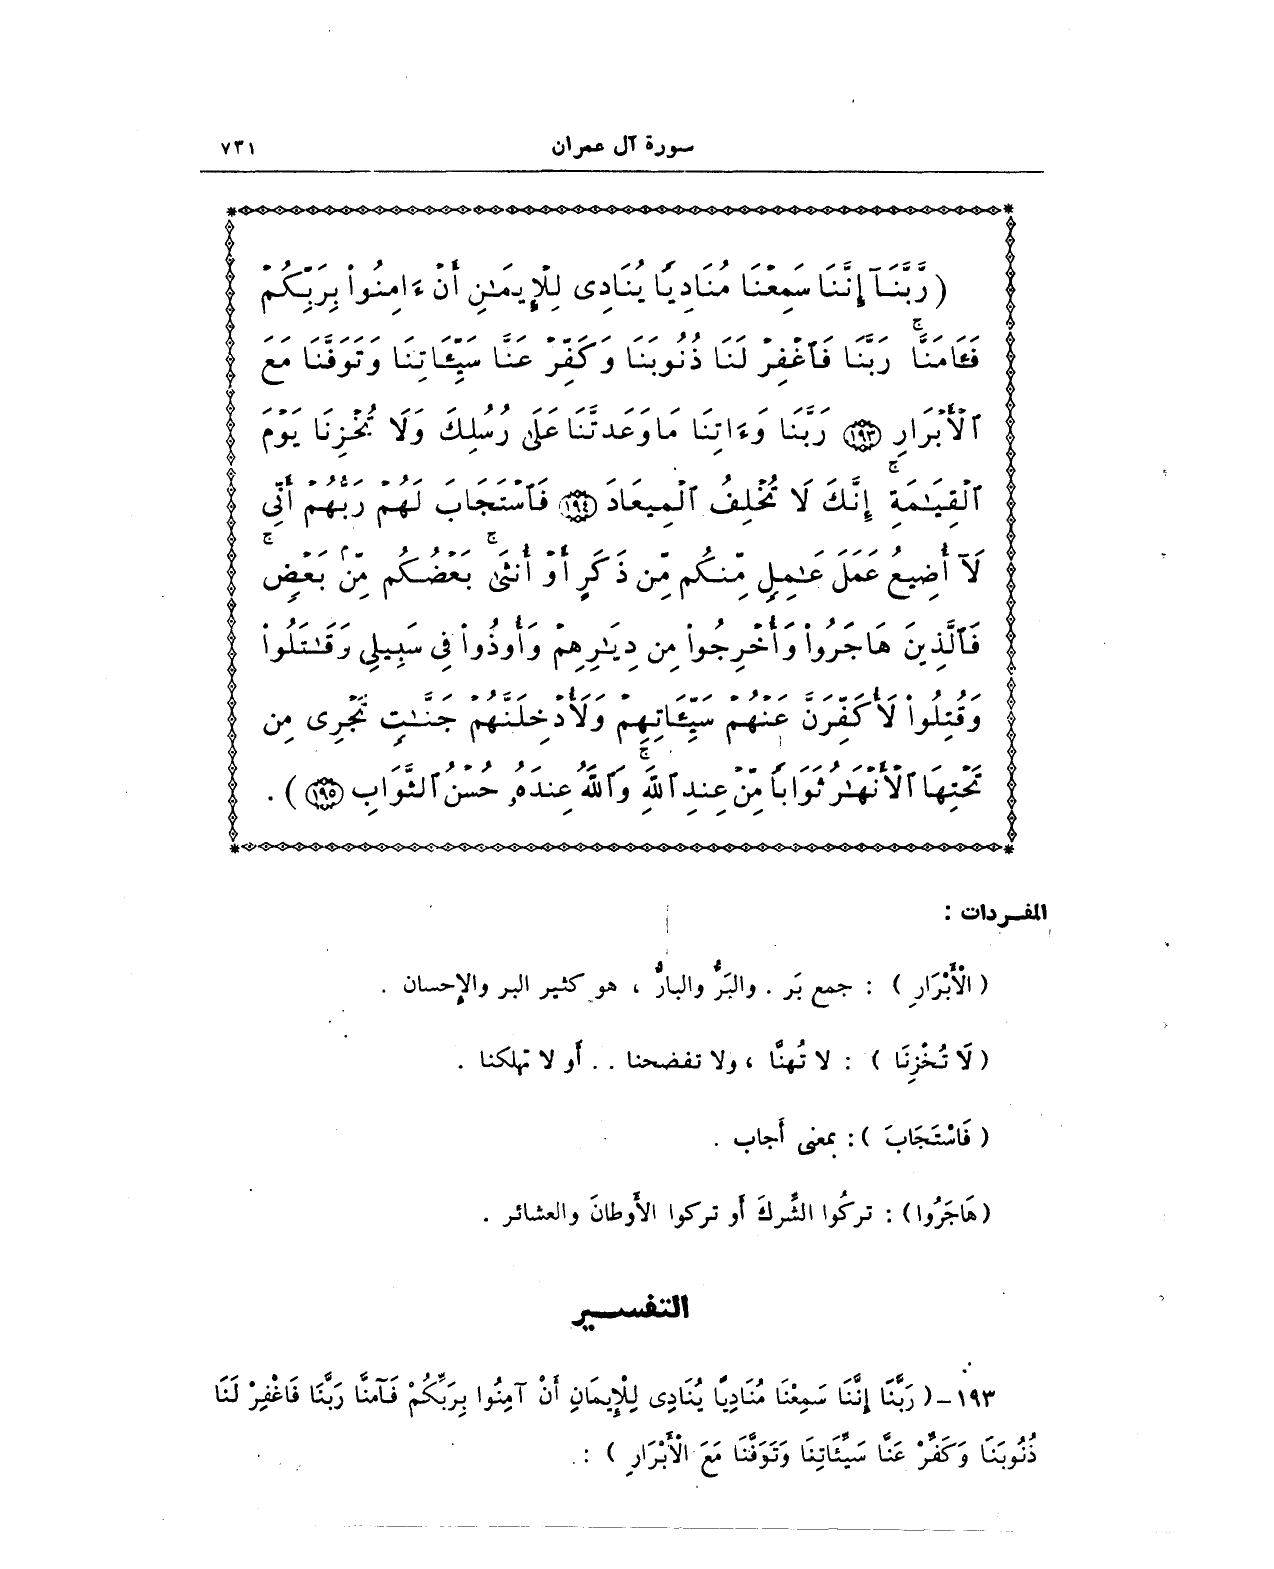 سورة آل عمران ٧٣١
(رَّبَّنَآ إِنَّنَا سَمِعْنَا مُنَادِيًا يُنَادِى لِلْإِيمَٰنِ أَنْ ءَامِنُوا۟ بِرَبِّكُمْ
فَـَٔامَنَّا ۚ رَبَّنَا فَٱغْفِرْ لَنَا ذُنُوبَنَا وَكَفِّرْ عَنَّا سَيِّـَٔاتِنَا وَتَوَفَّنَا مَعَ
ٱلْأَبْرَارِ ١٩٣ رَبَّنَا وَءَاتِنَا مَا وَعَدتَّنَا عَلَىٰ رُسُلِكَ وَلَا تُخْزِنَا يَوْمَ
ٱلْقِيَٰمَةِ ۚ إِنَّكَ لَا تُخْلِفُ ٱلْمِيعَادَ ١٩٤ فَٱسْتَجَابَ لَهُمْ رَبُّهُمْ أَنِّى
لَآ أُضِيعُ عَمَلَ عَٰمِلٍ مِّنكُم مِّن ذَكَرٍ أَوْ أُنثَىٰ ۚ بَعْضُكُم مِّنۢ بَعْضٍ ۚ
فَٱلَّذِينَ هَاجَرُوا۟ وَأُخْرِجُوا۟ مِن دِيَٰرِهِمْ وَأُوذُوا۟ فِى سَبِيلِى وَقَٰتَلُوا۟
وَقُتِلُوا۟ لَأُكَفِّرَنَّ عَنْهُمْ سَيِّـَٔاتِهِمْ وَلَأُدْخِلَنَّهُمْ جَنَّٰتٍ تَجْرِى مِن
تَحْتِهَا ٱلْأَنْهَٰرُ ثَوَابًا مِّنْ عِندِ ٱللَّهِ ۚ وَٱللَّهُ عِندَهُۥ حُسْنُ ٱلثَّوَابِ ١٩٥ ) .
المفـردات :
( الْأَبْرَارِ ) : جمع بَر . والبَرُّ والبارُّ ، هو كثير البر والإحسان .
( لَا تُخْزِنَا ) : لا تُهنَّا ، ولا تفضحنا . . أَو لا تهلكنا .
( فَاسْتَجَابَ ) : بمعنى أَجاب .
( هَاجَرُوا ) : تركُوا الشِّركَ أَو تركوا الأَوطانَ والعشائر .
التفســير
١٩٣ - ( رَبَّنَا إِنَّنَا سَمِعْنَا مُنَادِيًا يُنَادِى لِلْإِيمَانِ أَنْ آمِنُوا بِرَبِّكُمْ فَآمَنَّا رَبَّنَا فَاغْفِرْ لَنَا
ذُنُوبَنَا وَكَفِّرْ عَنَّا سَيِّئَاتِنَا وَتَوَفَّنَا مَعَ الْأَبْرَارِ ) :